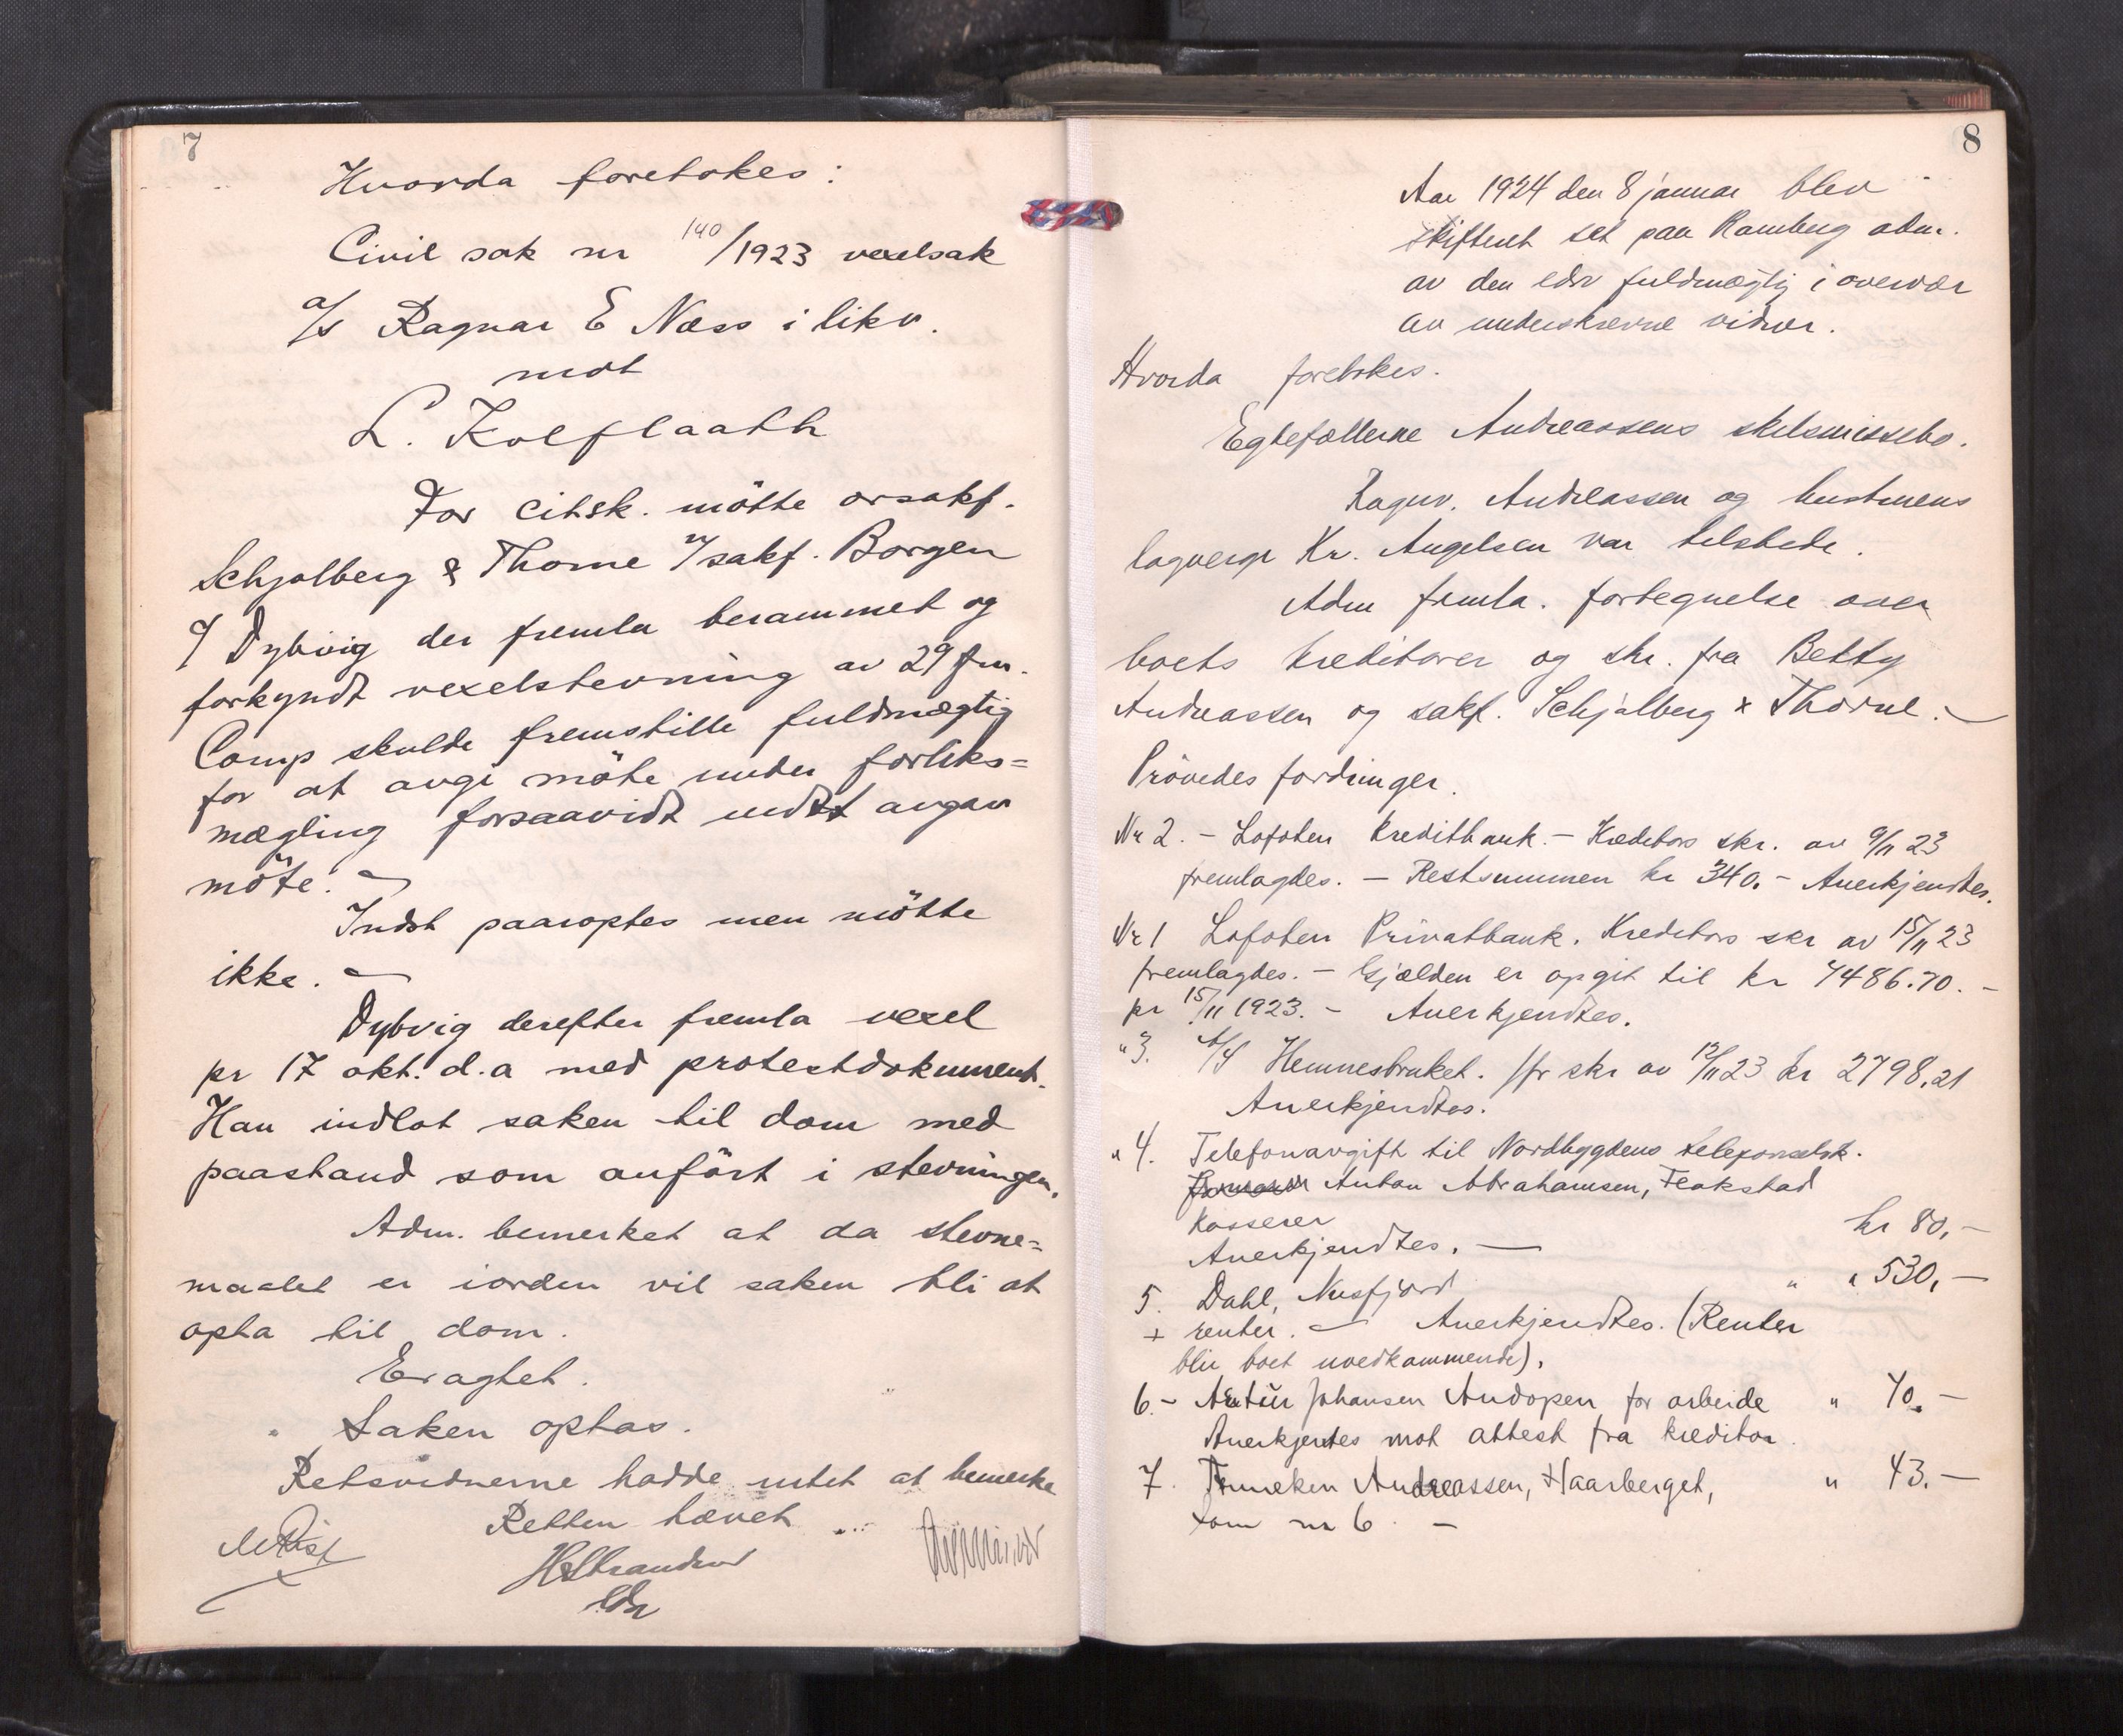 7
Hvorda foretokes:
Civil sak nr 140/1923 vexelsak
a/s Ragnar E Næss i likv.
mot
L. Kolflaath
For citsk. mötte orsakf.
Schjølberg & Thorne v/sakf. Borgen
o/ Dybvig der fremla berammet og
forkyndt vexelstevning av 29 f.m.
Comp skulde fremstille fuldmægtig
for at avgi möte under forliks=
mægling forsaavidt indst avgav
möte.
Indst paaroptes men mötte
ikke.
Dybvig derefter fremla vexel
pr 17 okt. d.a med protestdokument.
Han indlot saken til dom med
paastand som anfört i stevningen.
Adm. bemerket at da stevne=
maalet er iorden vil saken bli at
opta til dom.
Eragtet.
Saken optas.
Retsvidnerne hadde intet at bemerke
Retten hævet
HStrandem
Edsv
8
Aar 1924 den 8 januar blev
skifteret sat paa Ramberg adm.
av den edsv fuldmægtig i overvær
av underskrevne vidner.
Hvorda foretokes.
Egtefællerne Andreassens skilsmissebo.
Ragnv. Andreassen og hustruens
lagverge Kr. Angelsen var tilstede.
Adm fremla. fortegnelse over
boets kreditorer og skr. fra Betty
Andreassen og sakf. Schjølberg & Thorne. -
Prövedes fordringer.
Nr 2. - Lofoten Kreditbank. - Kreditors skr. av 9/11 23
fremlagdes. - Restsummen kr 340. - Anerkjendtes.
Nr 1 Lofoten Privatbank. Kreditors skr av 15/11 23
fremlagdes. - Gjælden er opgit til kr 7486.70. -
pr 15/11 1923. - Anerkjendtes.
" 3. A/S Hemnesbruket. Ifr skr av 12/11 23 kr 2798,21
Anerkjendtes.
" 4. Telefonavgift til Nordbygdens telefonselsk.
Anton Abrahamsen, Flakstad
kasserer kr 80,-
Anerkjendtes. -
5. Dahl, Nusfjord " " 530,-
+ renter. - Anerkjendtes. (Renter
blir boet uvedkommende).
6. - Artür Johansen Andopen for arbeide " 70. -
Anerkjendtes mot attest fra kreditor.
7. Andreassen, Haarberget, " 43. -
som nr 6. -